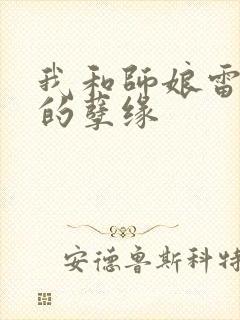 我和师娘雷
的孽缘
安德鲁斯科特